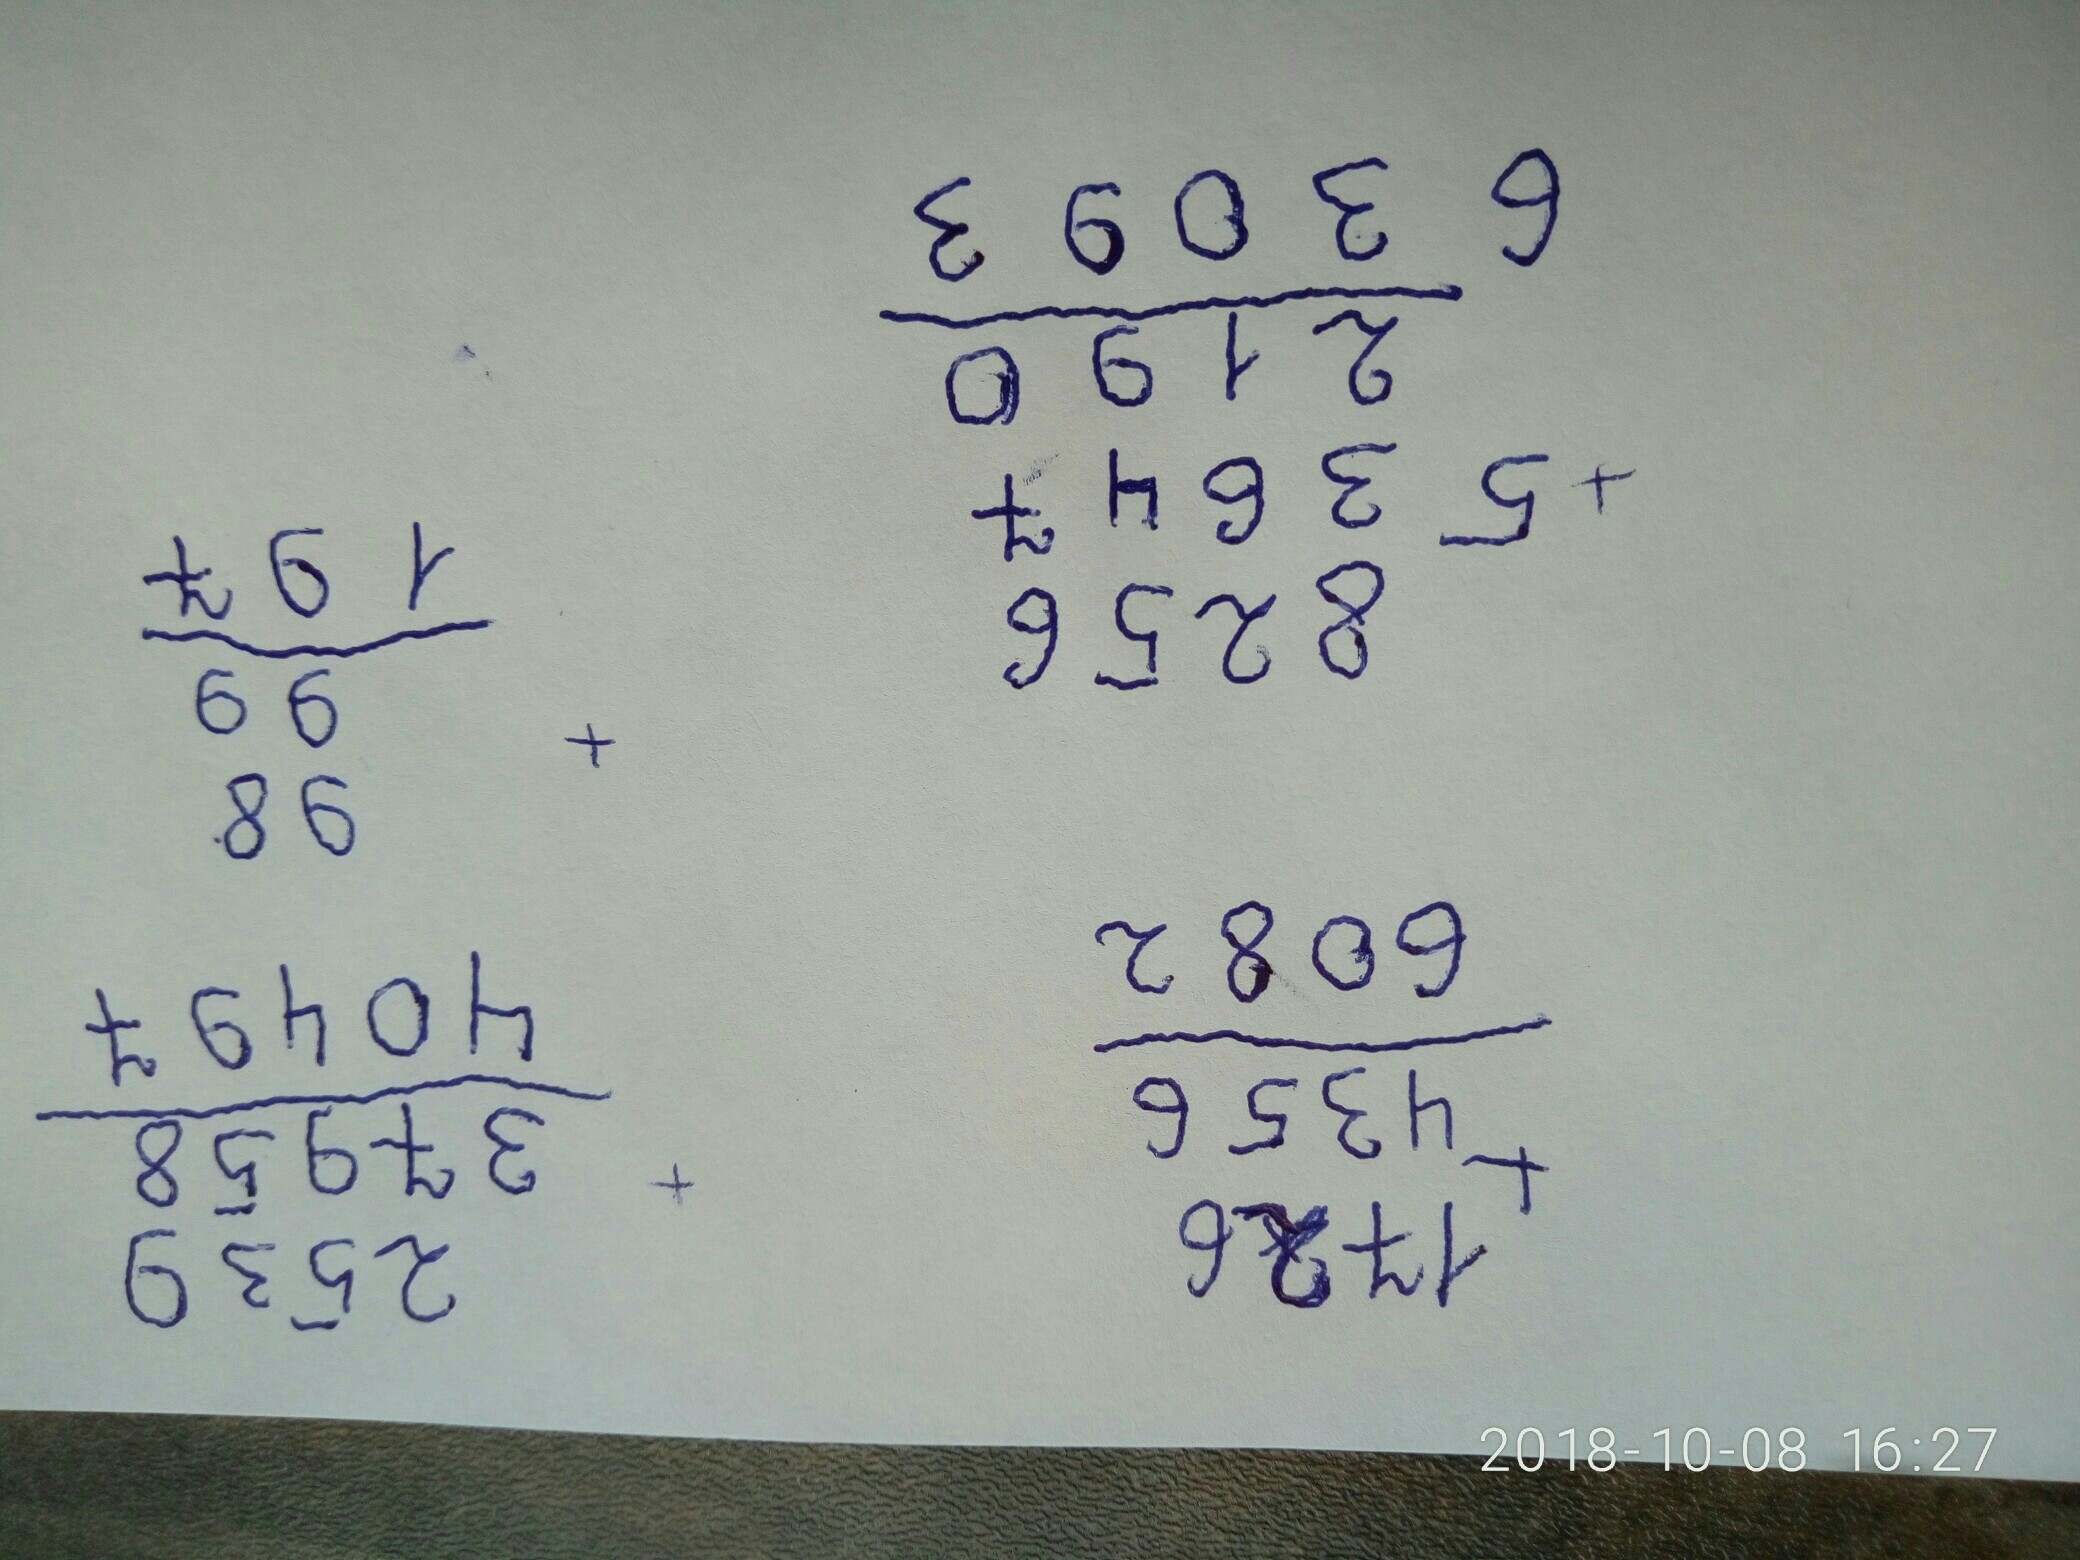 1726
+
4356
6082
2539
+
37958
40497
8256
+53647
2190
63093
98
+
99
197
2018-10-08 16:27